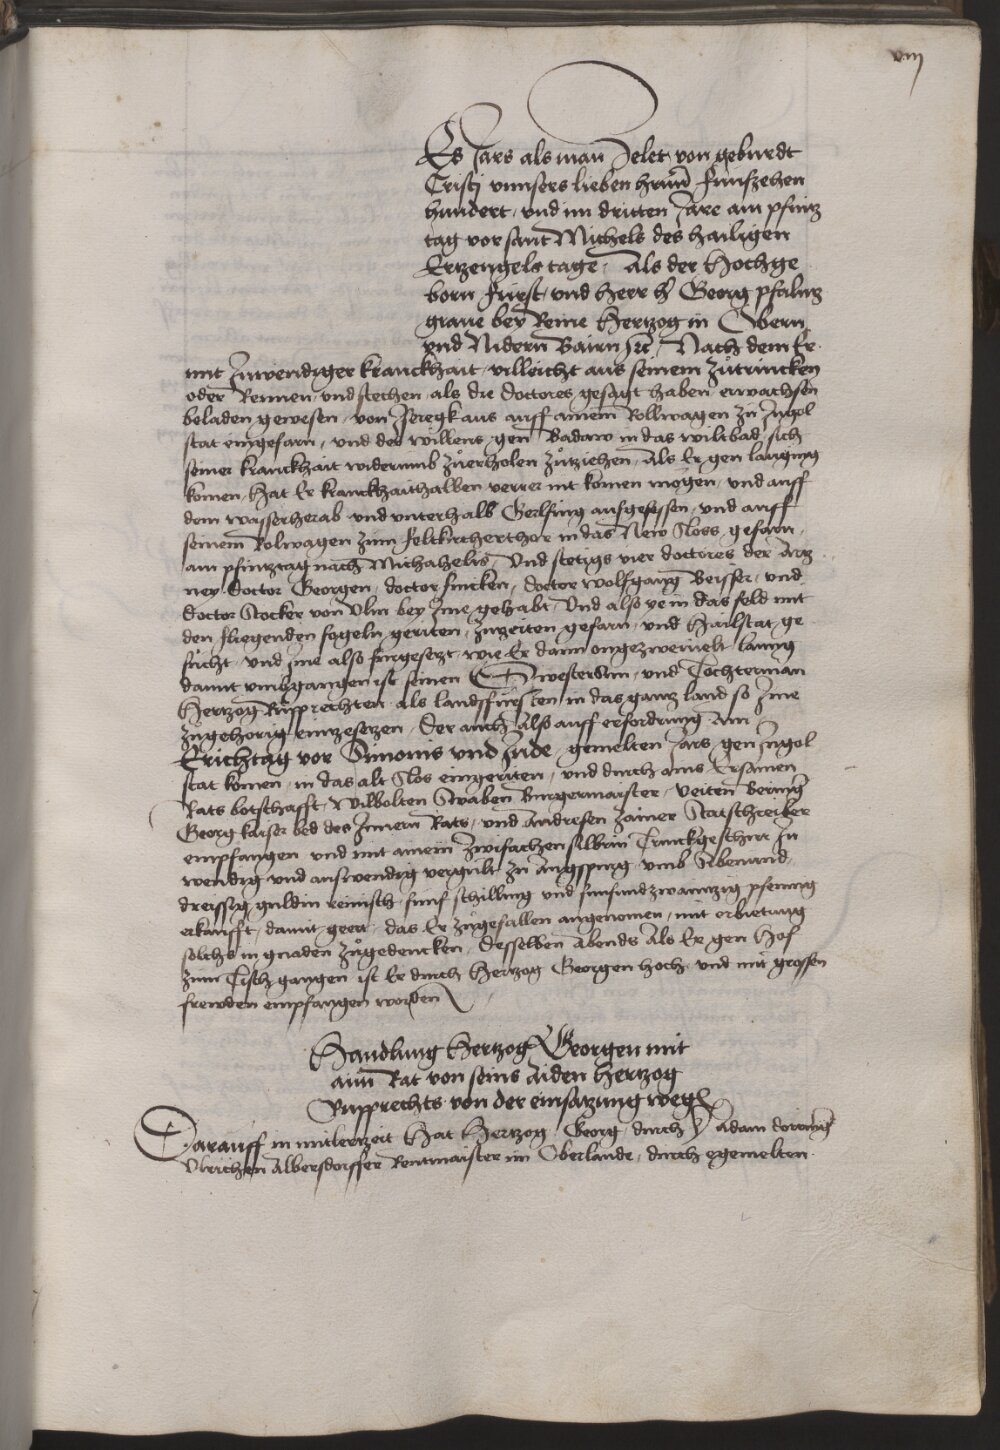 viij
Es Jars als man Zelet von geburdt
Cristj vnnsers lieben herrn funfzehen
hundert, vnd im dritten Jare am pfintz
tag vor sant Michels des hailigen
Ertzengels tage, Als der Hochge
born furst vnd Herr h Georg pfaltz
graue bey Reine Hertzog in Obern
vnd Nidern Bairn etc, Nach dem Er
mit Inwendiger kranckhait villeicht aus seinem Zutrincken
oder Rennen, vnd stechen, als die doctores gesagt haben erwachsen
beladen gewesen, von aus auff ainem Rollwagen zu Ingol
stat eingefarn, vnd des willens gen Badaw in das wiltbad sich
seiner kranckhait widerumb zuerholen zutziehen, Als Er gen lauging
komen, Hat Er kranckhaithalben verrer nit komen mögen, vnd auff
dem wasser herab vnd vnterhalb Gerlfing aufgesessen, vnd auff
seinem Rolwagen zum feltkircherthor in das New Sloss gefarn,
am pfintztag nach Michahelis, Vnd stetigs vier doctores der Artz
ney doctor Georgen, doctor fincken, doctor wolfgang Beisser, vnd
doctor Stocker von Vlm bey Ime gehabt, Vnd also ye in das feld mit
den fliegenden fogeln geriten, Zuzeiten gefarn, vnd Hailstat ge
sucht, vnd Ime also furgesetzt, wie Er dann ongezweiuelt lanng
damit vmbgangen ist seinen Swestersun, vnd Tochterman
Hertzog Rupprechten als landsfursten in das gantz land so Ime
zugehorig einzesetzen, Der auch also auff erfordrung Am
Erichtag vor Simonis vnd Jude, gemelten Jars, gen Ingol
stat komen, in das alt Slos eingeriten, vnd durch ains Ersamen
Rats botschafft, Wilbolten Swaben Burgermaister, Veiten
Georg kaiser bed des Innern Rats, vnd Andresen Zainer Statschreiber
empfangen vnd mit ainem zwifachen silbrin Trinckgeschirr In
wendig vnd auswendig vergült zu Augspurg vmb Sibenund
dreissig guldin reinisch funf schilling vnd funfundzwaintzig pfening
erkaufft, damit geert, das Er zugefallen angenomen, mit erbietung
solchs in gnaden zugedencken, Desselben Abends Als Er gen Hof
zum Tisch gangen ist Er durch Hertzog Georgen hoch vnd mit grossen
frewden empfangen worden
Handlung Hertzog Georgen mit
aim Rat von seins Aiden Hertzog
Rupprechts von der einsatzung wegen
Darauff in mitlerzeit Hat Hertzog Georg durch h Adam
Vlrichen Albersdorffer Rentmaister im Oberlande, durch egemelten